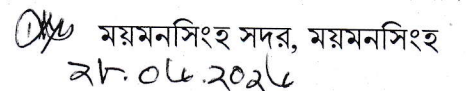 ময়মনসিংহ সদর, ময়মনসিংহ
২৮.০৫.২০২৫